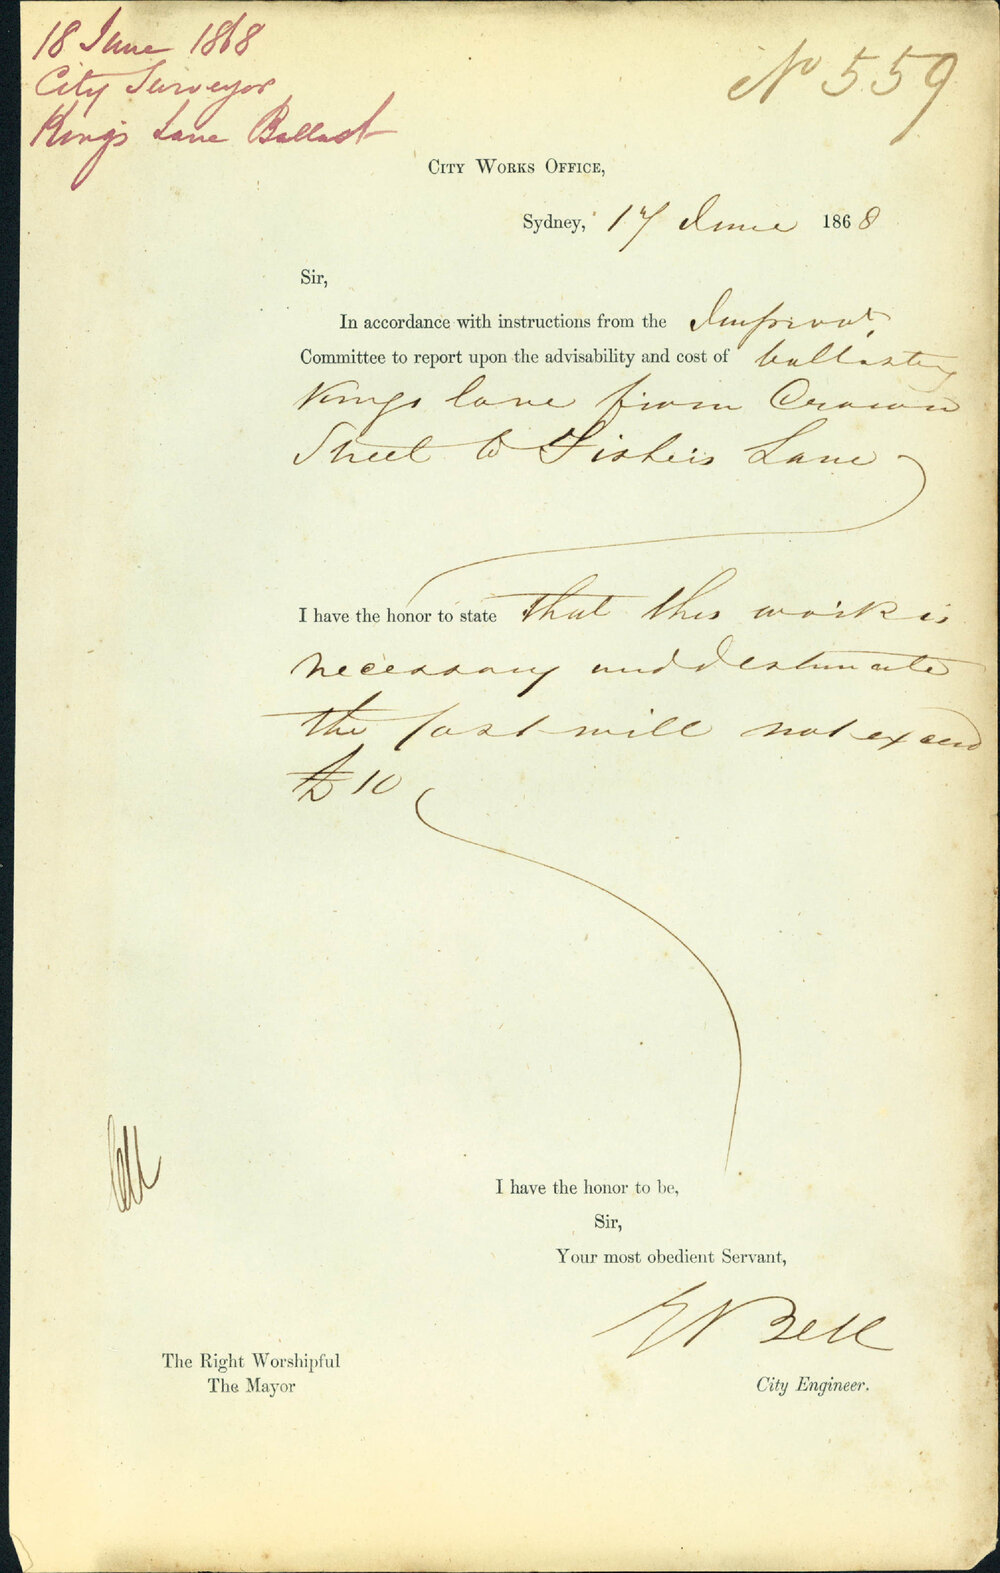 18 June 1868
City Surveyor
Kings Lane Ballast
No 559
CITY WORKS OFFICE,
Sydney, 17 June 1868
Sir,
In accordance with instructions from the Improvt
Committee to report upon the advisability and cost of ballasting
Kings lane from Crown
Street to Fishers Lane
I have the honor to state that this work is
necessary and I estimate
the cost will not exceed
£10
I have the honor to be,
Sir,
Your most obedient Servant,
E Bell
City Engineer.
The Right Worshipful
The Mayor